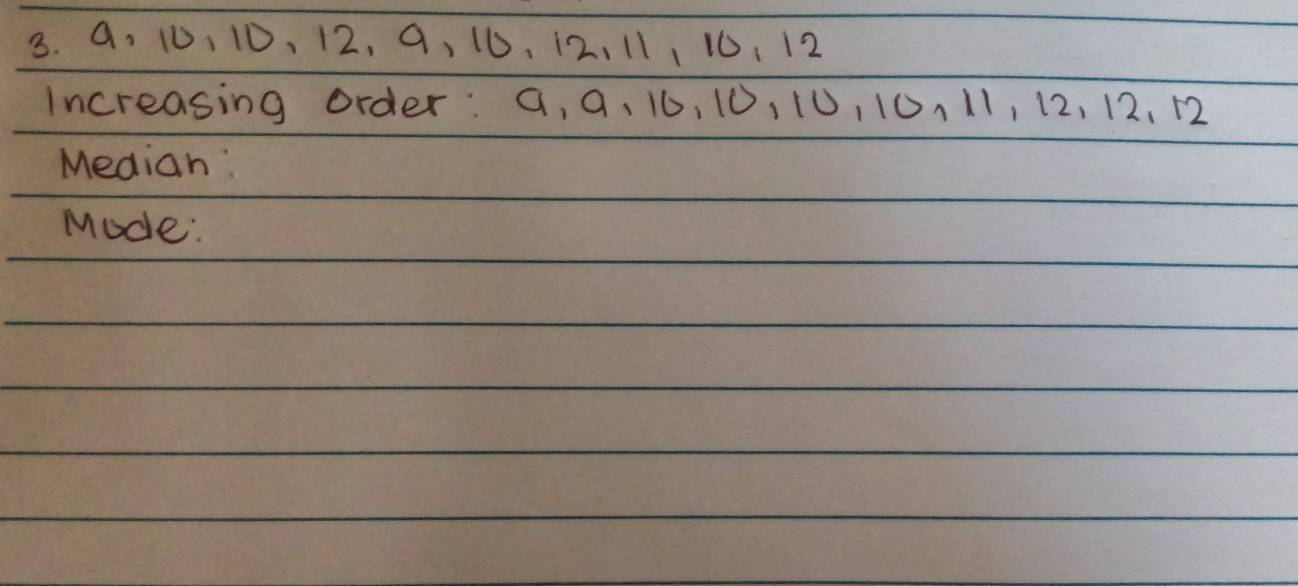 3. 9, 10, 10, 12, 9, 10, 12, 11, 10, 12
Increasing Order: 9, 9, 10, 10, 10, 10, 11, 12, 12, 12
Median:
Mode: